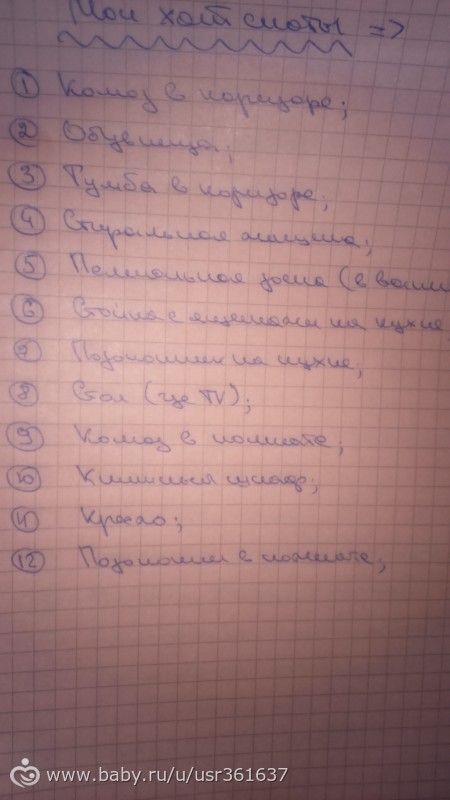 Мои хот споты =>
① Комод в коридоре;
② Обувница;
③ Тумба в коридоре;
④ Стиральная машина;
⑤ Пеленальная доска (в ванн
⑥ Стойка с ящиками на кухне
⑦ Подоконник на кухне;
⑧ Стол (где TV);
⑨ Комод в комнате;
⑩ Книжный шкаф;
⑪ Кресло;
⑫ Подоконник в комнате;
www.baby.ru/u/usr361637